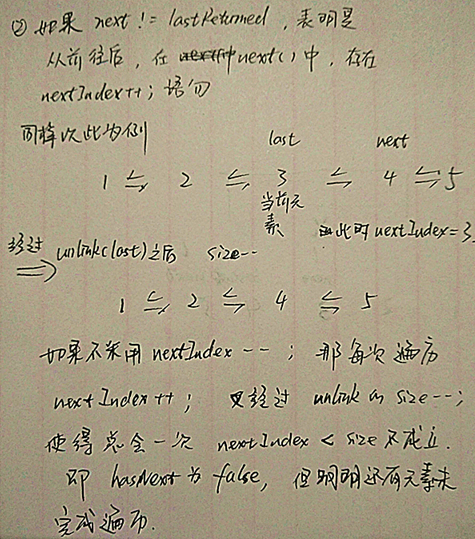 ② 如果 next != lastReturned，表明是
从前往后，在 next() 中，存在
nextIndex++; 语句
同样以此为例
last next
1 ⇆ 2 ⇆ 3 ⇆ 4 ⇆ 5
当前元
素 此时 nextIndex=3
经过 unlink(last)之后 size--
⇒
1 ⇆ 2 ⇆ 4 ⇆ 5
如果不采用 nextIndex--； 那每次遍历
nextIndex++； 又经过 unlink 的 size--；
使得总会一次 nextIndex < size 不成立.
即 hasNext 为 false，但明明还有元素未
完成遍历.